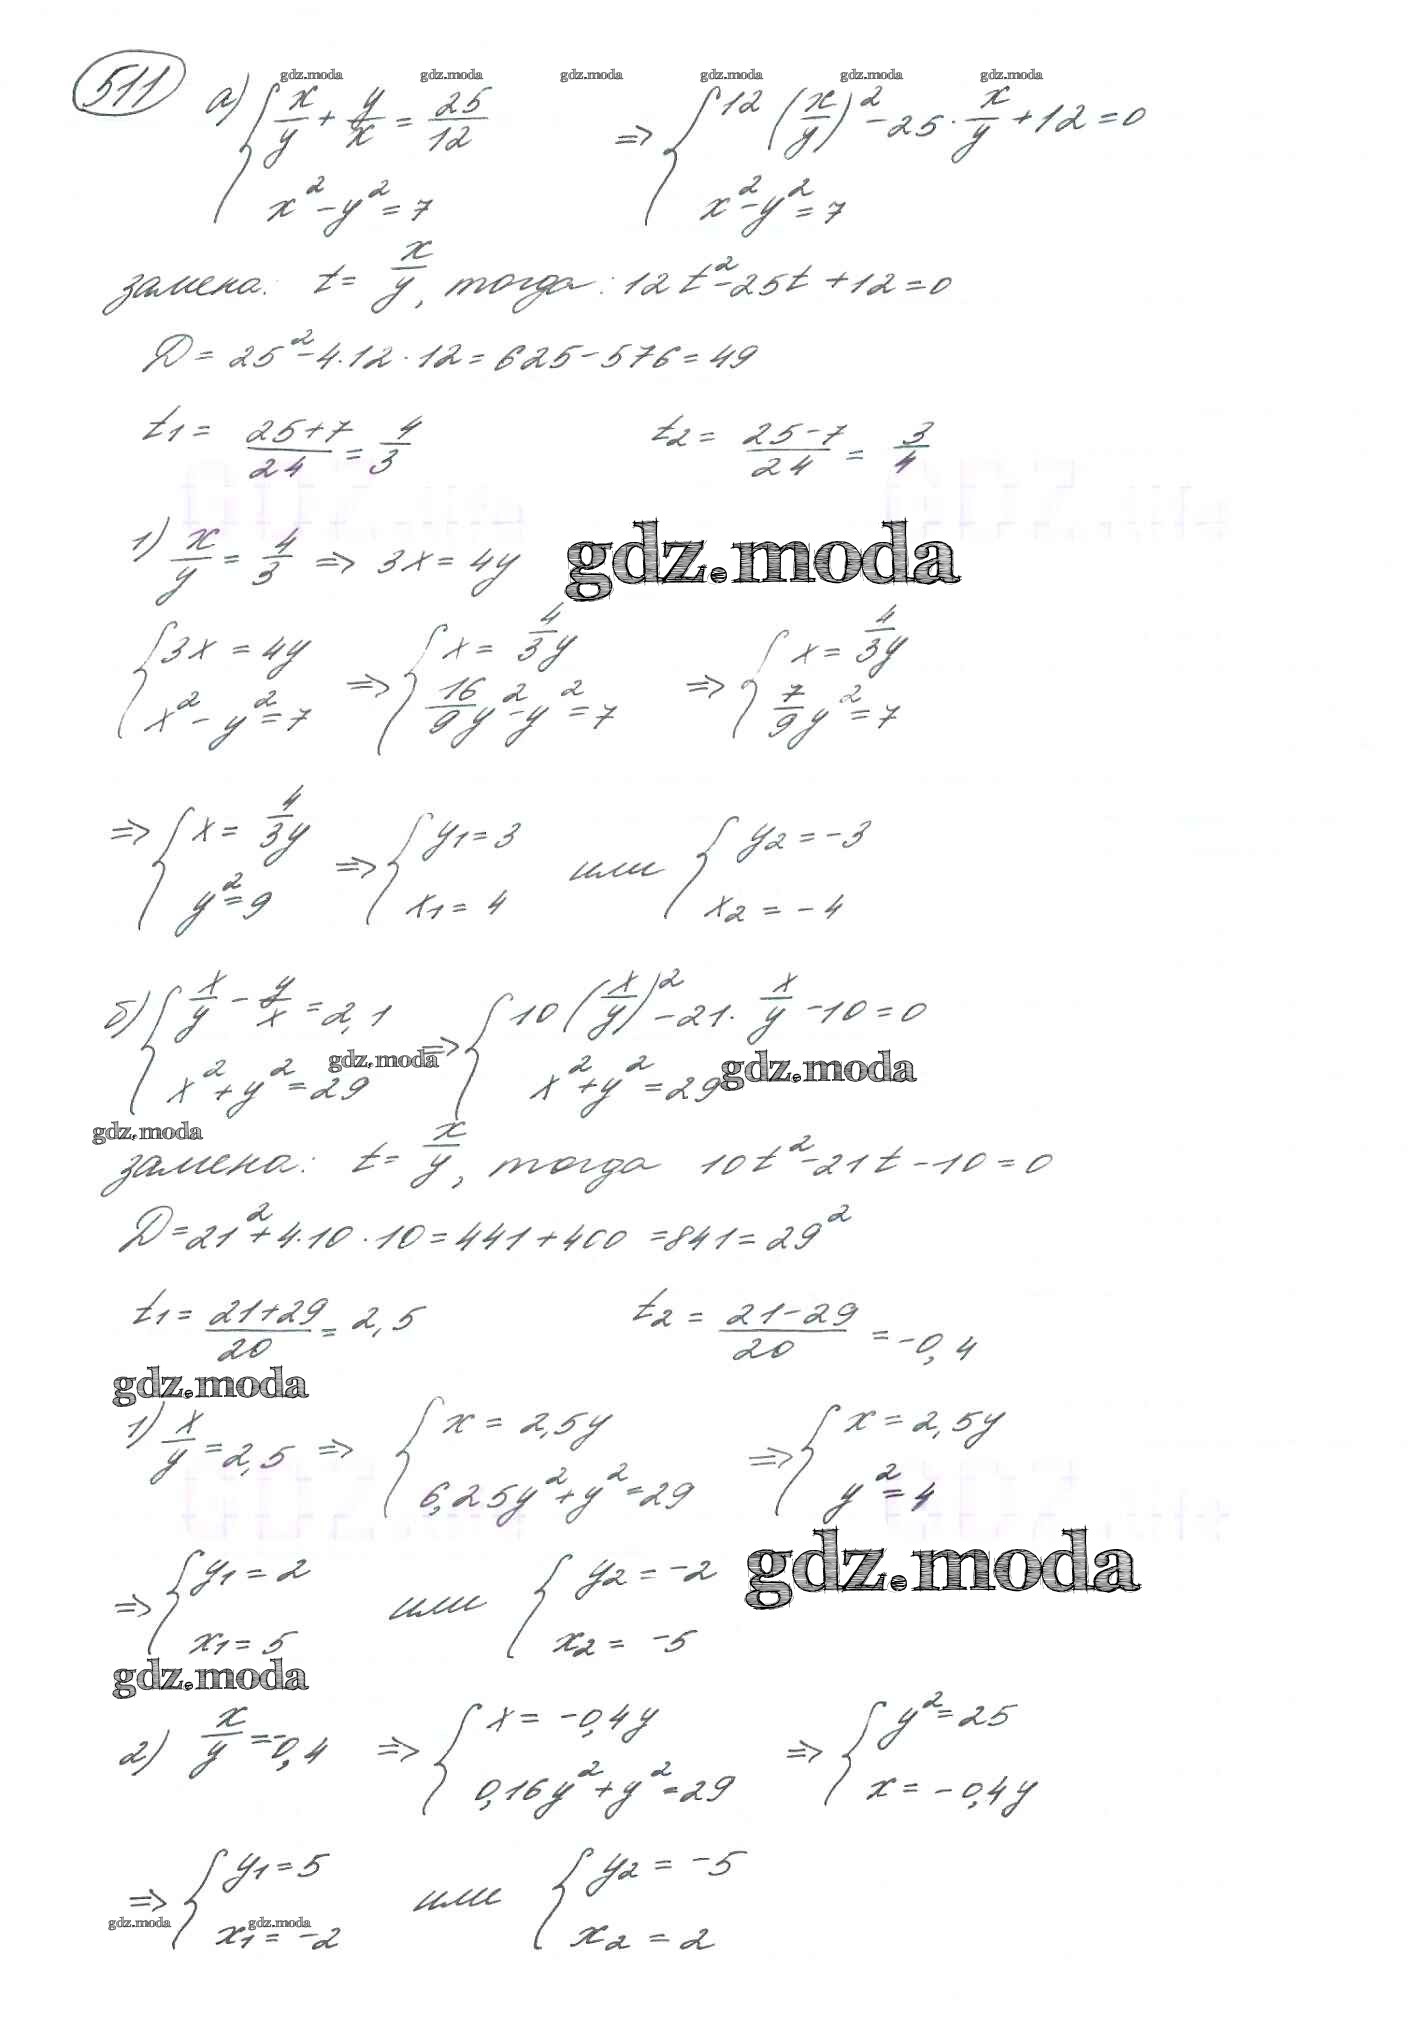 gdz.moda gdz.moda gdz.moda gdz.moda gdz.moda gdz.moda
511 а) { x/y + y/x = 25/12 => { 12 (x/y)² - 25 · x/y + 12 = 0
x² - y² = 7 x² - y² = 7
замена: t = x/y, тогда: 12t² - 25t + 12 = 0
D = 25² - 4·12·12 = 625 - 576 = 49
t1 = (25+7)/24 = 4/3 t2 = (25-7)/24 = 3/4
1) x/y = 4/3 => 3x = 4y gdz.moda
{ 3x = 4y => { x = 4/3 y => { x = 4/3 y
x² - y² = 7 16/9 y² - y² = 7 7/9 y² = 7
=> { x = 4/3 y => { y1 = 3 или { y2 = -3
y² = 9 x1 = 4 x2 = -4
б) { x/y - y/x = 2,1 => { 10 (x/y)² - 21 · x/y - 10 = 0
x² + y² = 29 gdz.moda x² + y² = 29 gdz.moda
gdz.moda
замена: t = x/y, тогда 10t² - 21t - 10 = 0
D = 21² + 4·10·10 = 441 + 400 = 841 = 29²
t1 = (21+29)/20 = 2,5 t2 = (21-29)/20 = -0,4
gdz.moda
1) x/y = 2,5 => { x = 2,5y => { x = 2,5y
6,25y² + y² = 29 y² = 4
=> { y1 = 2 или { y2 = -2 gdz.moda
x1 = 5 x2 = -5
gdz.moda
2) x/y = -0,4 => { x = -0,4y => { y² = 25
0,16y² + y² = 29 x = -0,4y
=> { y1 = 5 или { y2 = -5
gdz.moda gdz.moda
x1 = -2 x2 = 2